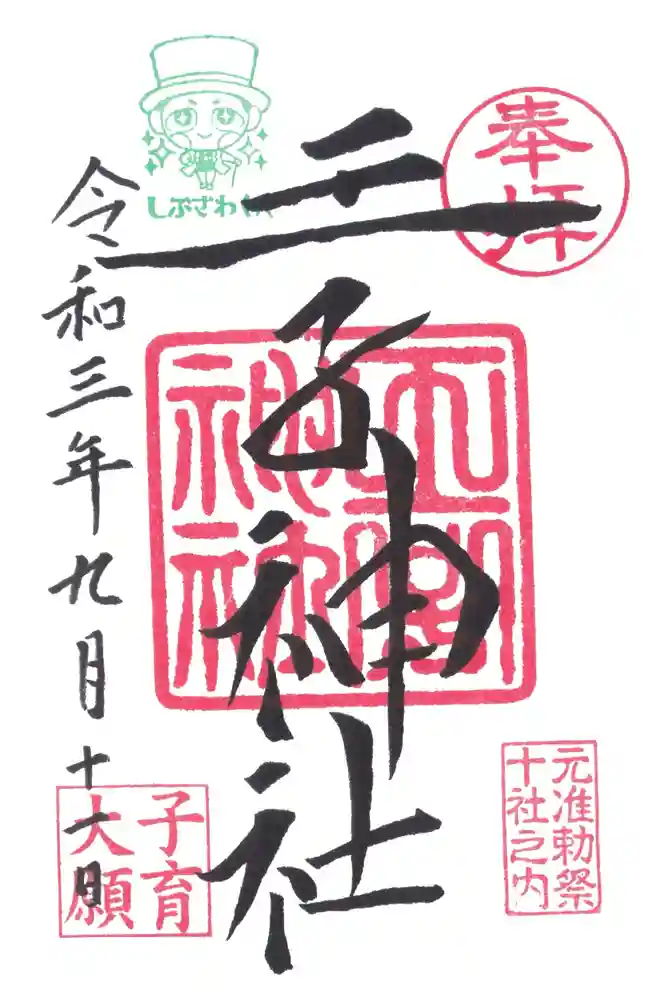 奉拝
元准勅祭
十社之内
王子神社
しぶざわくん
令和三年九月十一日
子育
大願